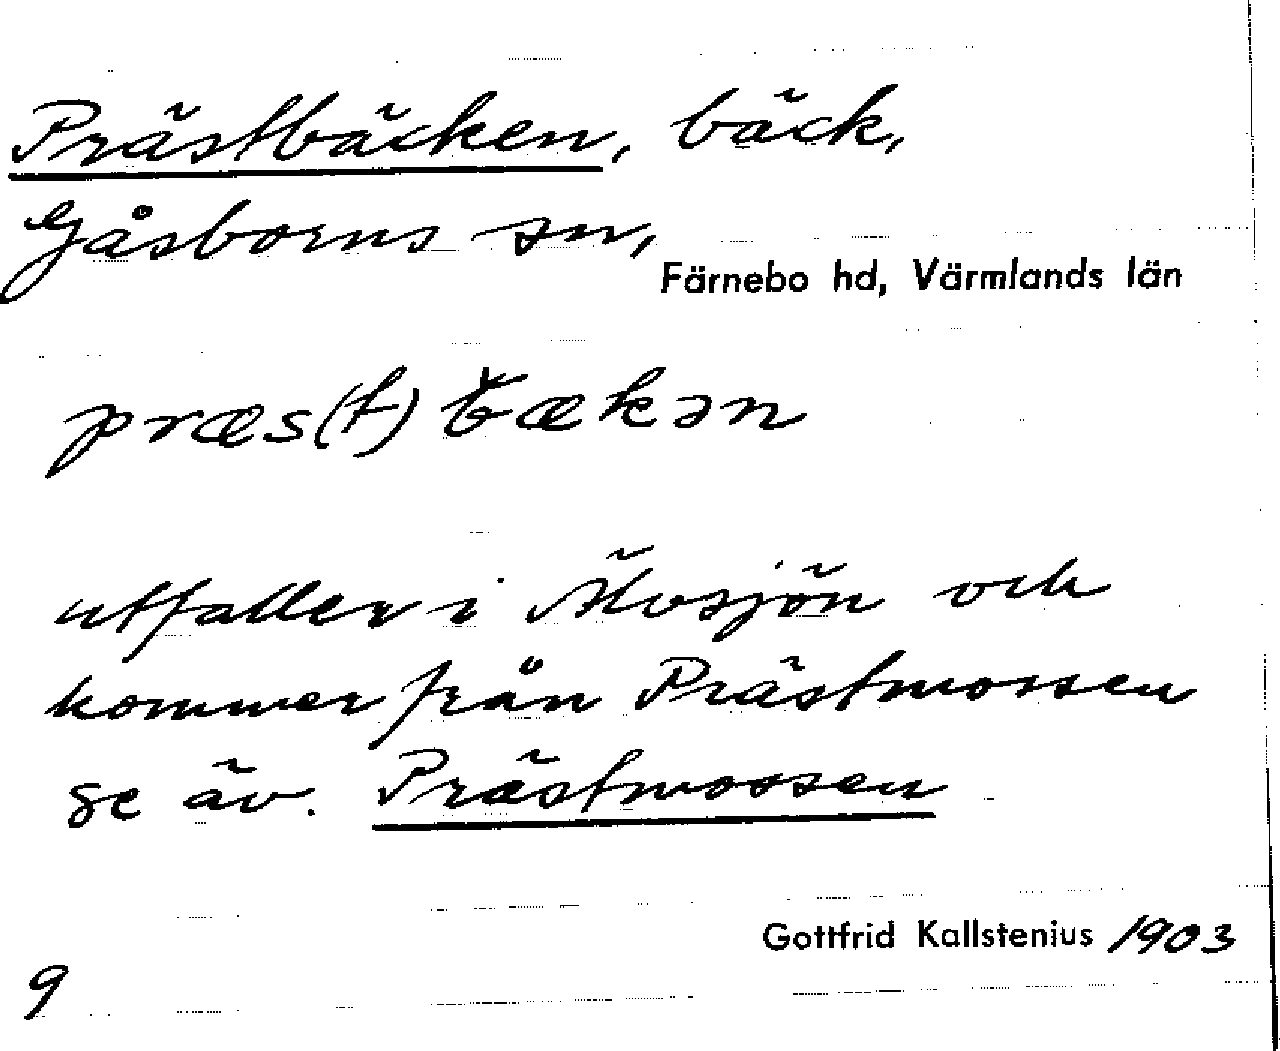 Prästbäcken, bäck,
Gåsborns sn,
Färnebo hd, Värmlands län
præs(t)bækən
utfaller i Älvsjön och
kommer från Prästmossen
se äv. Prästmossen
Gottfrid Kallstenius 1903
9